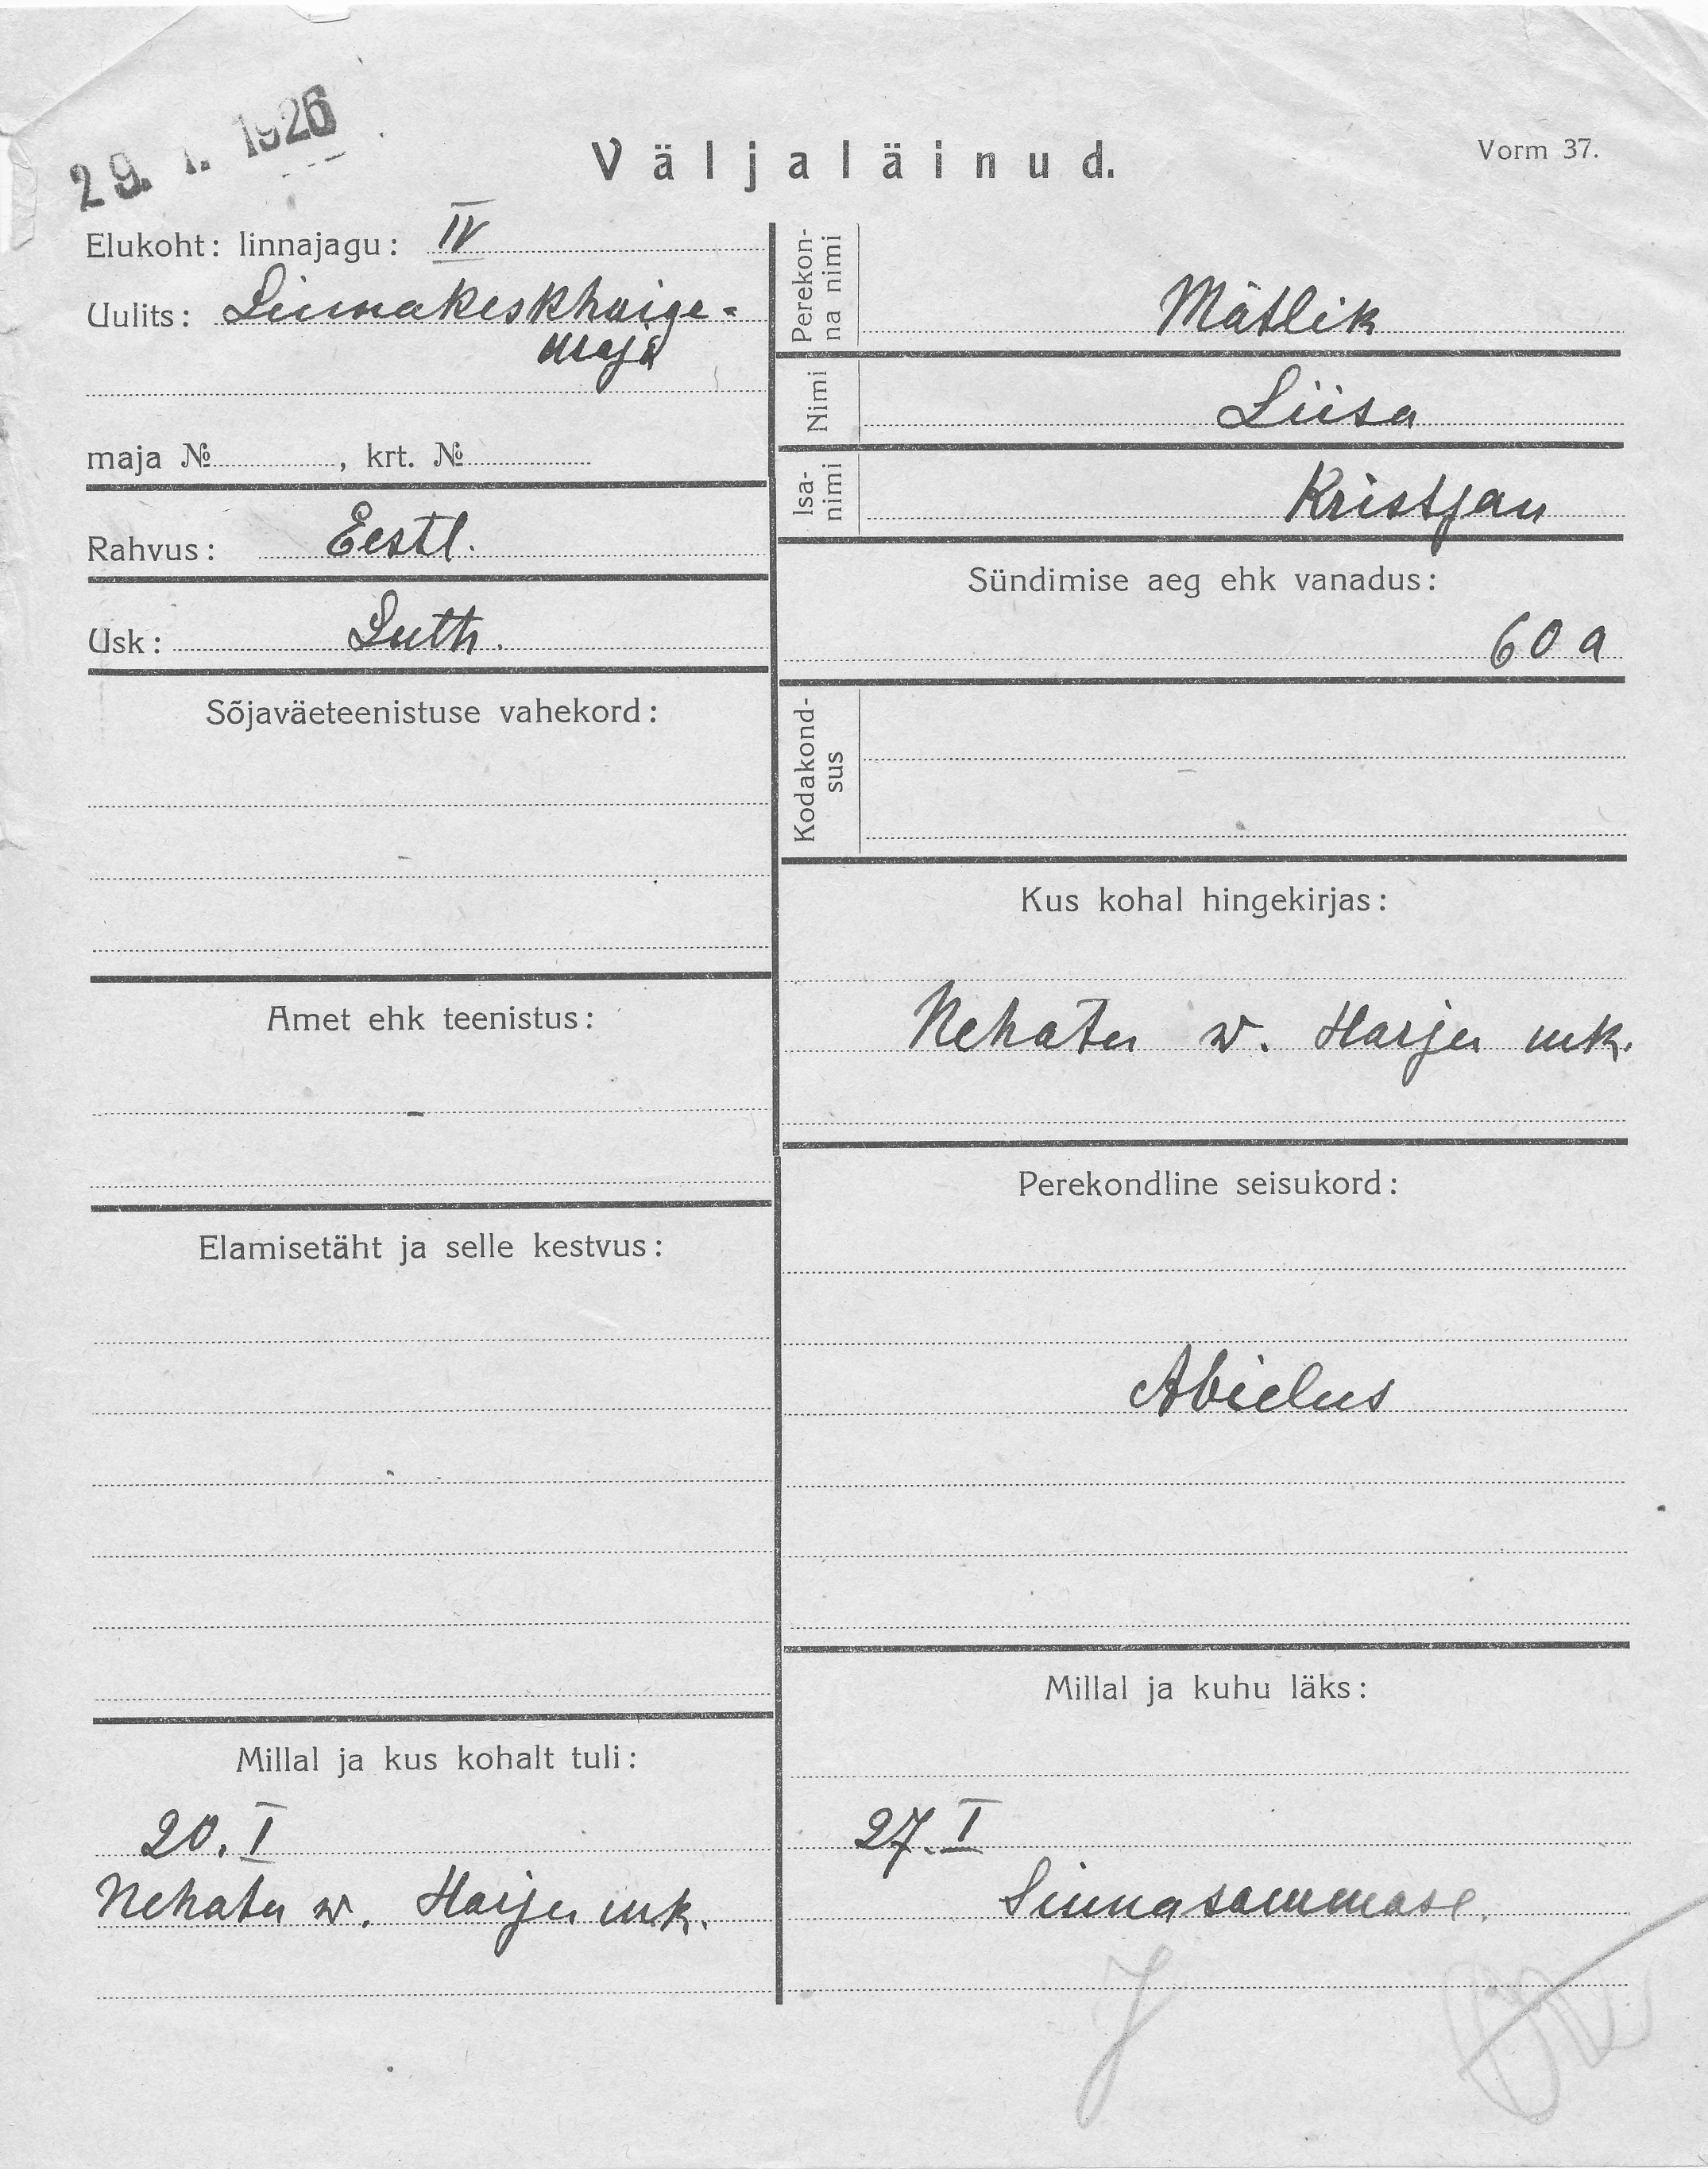 29. I. 1926
Väljaläinud.
Vorm 37.
Elukoht: linnajagu: IV
Uulits: Linnakeskhaige-
maja
maja №, krt. №
Rahvus: Eestl.
Usk: Luth.
Sõjaväeteenistuse vahekord:
Amet ehk teenistus:
-
Elamisetäht ja selle kestvus:
Millal ja kus kohalt tuli:
20. I
Nehatu w. Harju mk.
Perekon-
na nimi
Mätlik
Nimi
Liisa
Isa-
nimi
Kristjan
Sündimise aeg ehk vanadus:
60 a
Kodakond-
sus
Kus kohal hingekirjas:
Nehatu w. Harju mk.
Perekondline seisukord:
Abielus
Millal ja kuhu läks:
27. I
Sinnasammase.